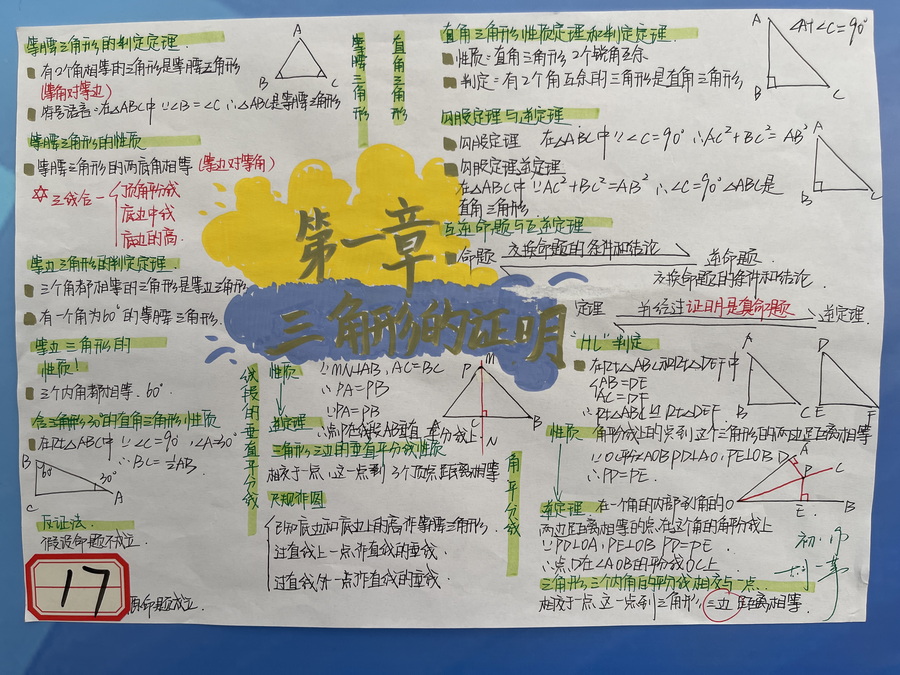 等腰三角形的判定定理
有2个角相等的三角形是等腰三角形
(等角对等边)
符号语言:在△ABC中∵∠B=∠C∴△ABC是等腰三角形
A
B
C
等腰三角形的性质
等腰三角形的两底角相等(等边对等角)
三线合一
顶角平分线
底边中线
底边的高.
等边三角形的判定定理.
三个角都相等的三角形是等边三角形
有一个角为60°的等腰三角形.
等边三角形的
性质:
三个内角都相等.60°
含三角形30°的直角三角形性质
在Rt△ABC中∵∠C=90°∠A=30°
∴BC=½AB.
B
60°
30°
C
A
反证法.
假设命题不成立.
17
原命题成立.
等腰三角形
直角三角形
第一章
三角形的证明
线段的垂直平分线
性质
∵MN⊥AB,AC=BC
∴PA=PB
逆定理
∵PA=PB
∴点P在线段AB垂直平分线上
M
P
A
C
B
N
三角形三边的垂直平分线性质
相交于一点,这一点到3个顶点距离相等
尺规作图
已知底边和底边上的高,作等腰三角形.
过直线上一点作直线的垂线.
过直线外一点作直线的垂线.
角平分线
直角三角形性质定理和判定定理.
性质=直角三角形2个锐角互余
判定=有2个角互余的三角形是直角三角形
A
∠A+∠C=90°
B
C
勾股定理与逆定理
勾股定理 在△ABC中∵∠C=90°∴AC²+BC²=AB²
勾股定理逆定理
在△ABC中∵AC²+BC²=AB²∴∠C=90°△ABC是
直角三角形
A
B
C
互逆命题与互逆定理
命题
交换命题的条件和结论
逆命题
交换命题的条件和结论
定理
若经过证明是真命题
逆定理.
"HL"判定
在Rt△ABC和Rt△DEF中
AB=DE
AC=DE
∴Rt△ABC≌Rt△DEF
A
B
C
D
E
F
性质
角平分线上的点到这个三角形的两边距离相等
∵OC平分∠AOB PD⊥AO,PE⊥OB
∴PD=PE.
A
D
C
P
O
E
B
逆定理.在一个角的内部到角的
两边距离相等的点,在这个角的角平分线上
∵PD⊥OA,PE⊥OB PD=PE.
∴点D在∠AOB的平分线OC上
三角形,三个内角的平分线相交与一点.
相交于一点.这一点到三角形,三边距离相等.